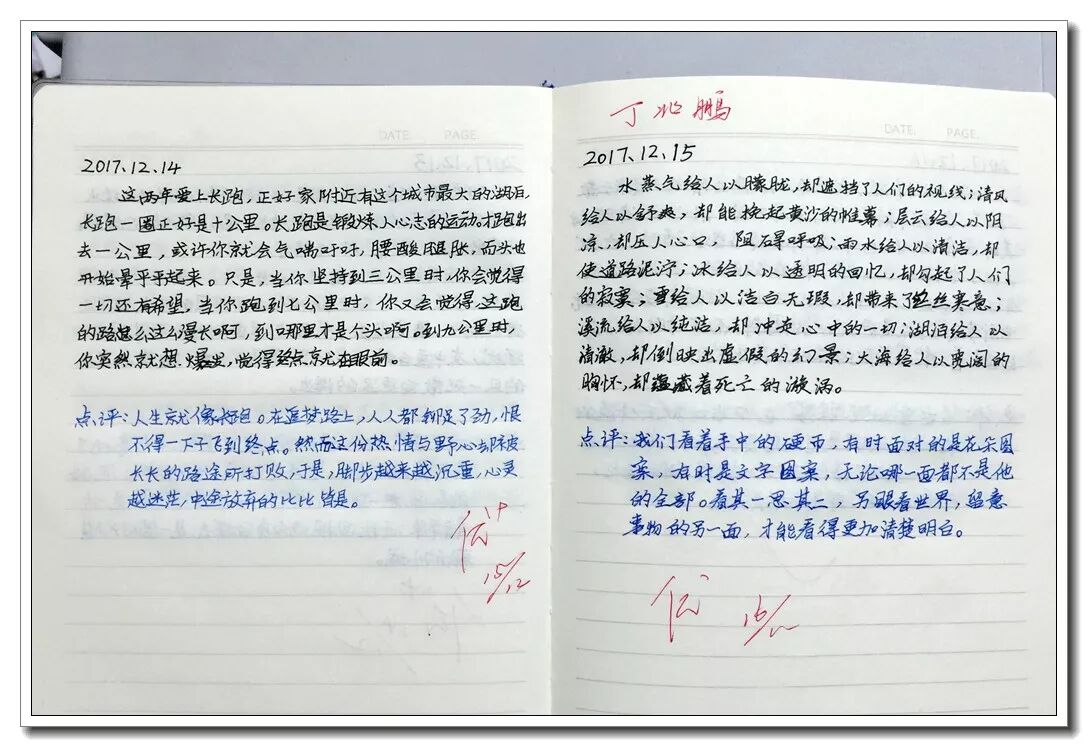 DATE. PAGE.
2017.12.14
这两年爱上长跑，正好家附近有这个城市最大的湖泊，
长跑一圈正好是十公里。长跑是锻炼人心志的运动，才跑出
去一公里，或许你就会气喘吁吁，腰酸腿胀，而头也
开始晕乎乎起来。只是，当你坚持到三公里时，你会觉得
一切还有希望，当你跑到七公里时，你又会觉得这跑
的路怎么这么漫长啊，到哪里才是个头啊。到九公里时，
你突然就想爆发，觉得终点就在眼前。
点评：人生就像长跑。在追梦路上，人人都铆足了劲，恨
不得一下子飞到终点。然而这份热情与野心却被
长长的路途所打败，于是，脚步越来越沉重，心灵
越迷茫，中途放弃的比比皆是。
优
15/12
丁兆鹏
DATE. PAGE.
2017.12.15
水蒸气给人以朦胧，却遮挡了人们的视线；清风
给人以舒爽，却能挽起黄沙的帷幕；层云给人以阴
凉，却压人心口，阻碍呼吸；雨水给人以清洁，却
使道路泥泞；冰给人以透明的回忆，却勾起了人们
的寂寞；雪给人以洁白无瑕，却带来了丝丝寒意；
溪流给人以纯洁，却冲走心中的一切；湖泊给人以
清澈，却倒映出虚假的幻景；大海给人以宽阔的
胸怀，却蕴藏着死亡的漩涡。
点评：我们看着手中的硬币，有时面对的是花朵图
案，有时是文字图案，无论哪一面都不是他
的全部。看其一思其二，另眼看世界，留意
事物的另一面，才能看得更加清楚明白。
优
16/12